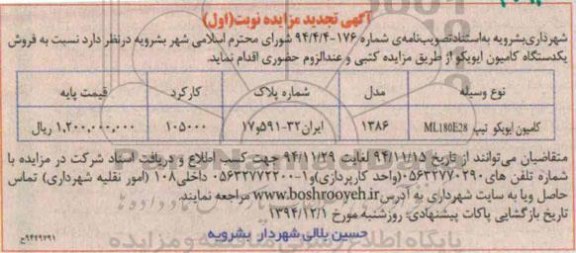 آگهی تجدید مزایده نوبت(اول)
شهرداری بشرویه به استناد تصویب نامه‌ی شماره ۱۷۶-۹۴/۴/۴ شورای محترم اسلامی شهر بشرویه در نظر دارد نسبت به فروش
یکدستگاه کامیون ایویکو از طریق مزایده کتبی و عندالزوم حضوری اقدام نماید.
نوع وسیله مدل شماره پلاک کارکرد قیمت پایه
کامیون ایویکو تیپ ML180E28 ۱۳۸۶ ایران ۳۲-۵۹۱و۱۷ ۱۰۵۰۰۰ ۱,۲۰۰,۰۰۰,۰۰۰ ریال
متقاضیان می‌توانند از تاریخ ۹۴/۱۱/۱۵ لغایت ۹۴/۱۱/۲۹ جهت کسب اطلاع و دریافت اسناد شرکت در مزایده با
شماره تلفن های ۰۵۶۳۲۷۷۰۲۹۰(واحد کارپردازی)و۱-۰۵۶۳۲۷۷۲۲۰۰ داخلی۱۰۸ (امور نقلیه شهرداری) تماس
حاصل ویا به سایت شهرداری به آدرس www.boshrooyeh.ir مراجعه نمایند.
تاریخ بازگشایی پاکات پیشنهادی: روزشنبه مورخ ۱۳۹۴/۱۲/۱
حسین بلالی شهردار بشرویه
پایگاه اطلاع رسانی مناقصه و مزایده